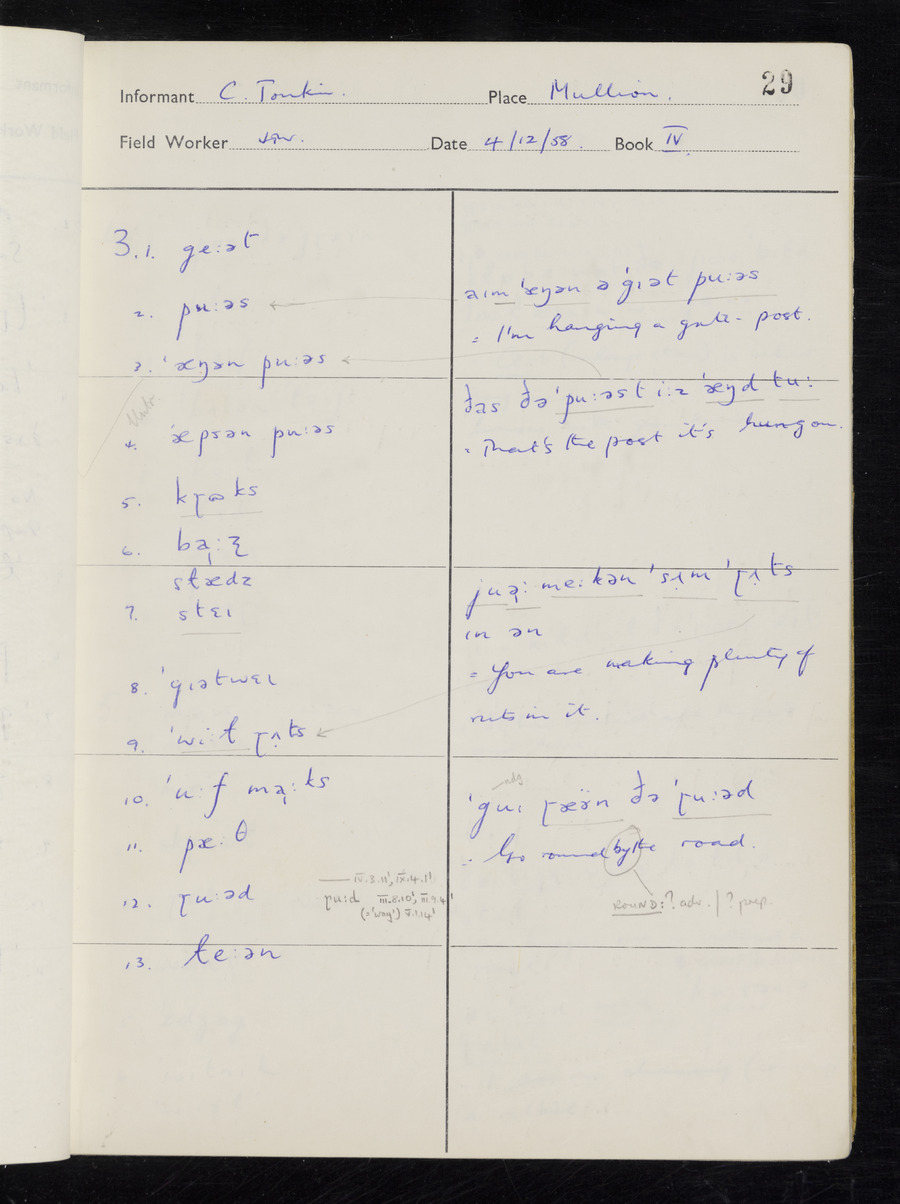 29
Informant C. Tonkin. Place Mullion.
Field Worker Date 4/12/58. Book IV
3.1. geːət
2. puːəs
aɪm ˈæŋən ə ˈgɪət puːəs
= I'm hanging a gate-post.
3. ˈæŋən puːəs
ðas ðə ˈpuːəst iːz ˈæŋd tuː
= That's the post it's hung on.
4. ˈæpsən puːəs
5. ks
6. 
stædz
7. stɛɪ
meːkən
ɪn ən
= You are making plenty of
ruts in it.
8. ˈgɪətwɛɪ
9.
10. ˈuːf
ðə ˈɽuːəd
= Go round by the road.
11. pæːθ
12. ɽuːəd
IV.3.11', IX.4.1'
ɽuːd III.8.10', III.9.4'
(='way') V.1.14'
ROUND: ? adv. / ? prep.
13. teːən